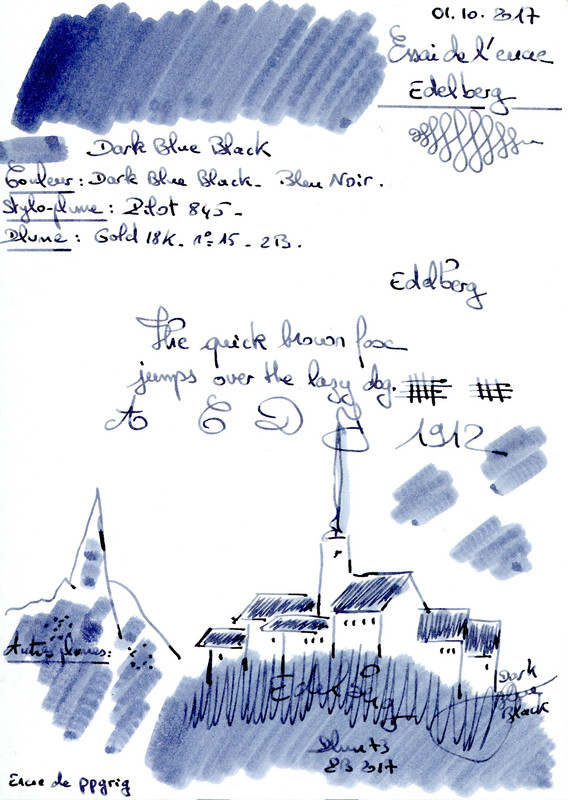 01.10.2017
Essai de l'encre
Edelberg
Dark Blue Black
Couleur : Dark Blue Black - Bleu Noir.
Stylo-plume : Pilot 845 -
Plume : Gold 18K - n° 15 - 2B.
Edelberg
The quick brown fox
jumps over the lazy dog.
A E D J 1912
Autres plumes :
Edelberg
Dark
Blue
Black
2B 2017
Encre de ppgrig